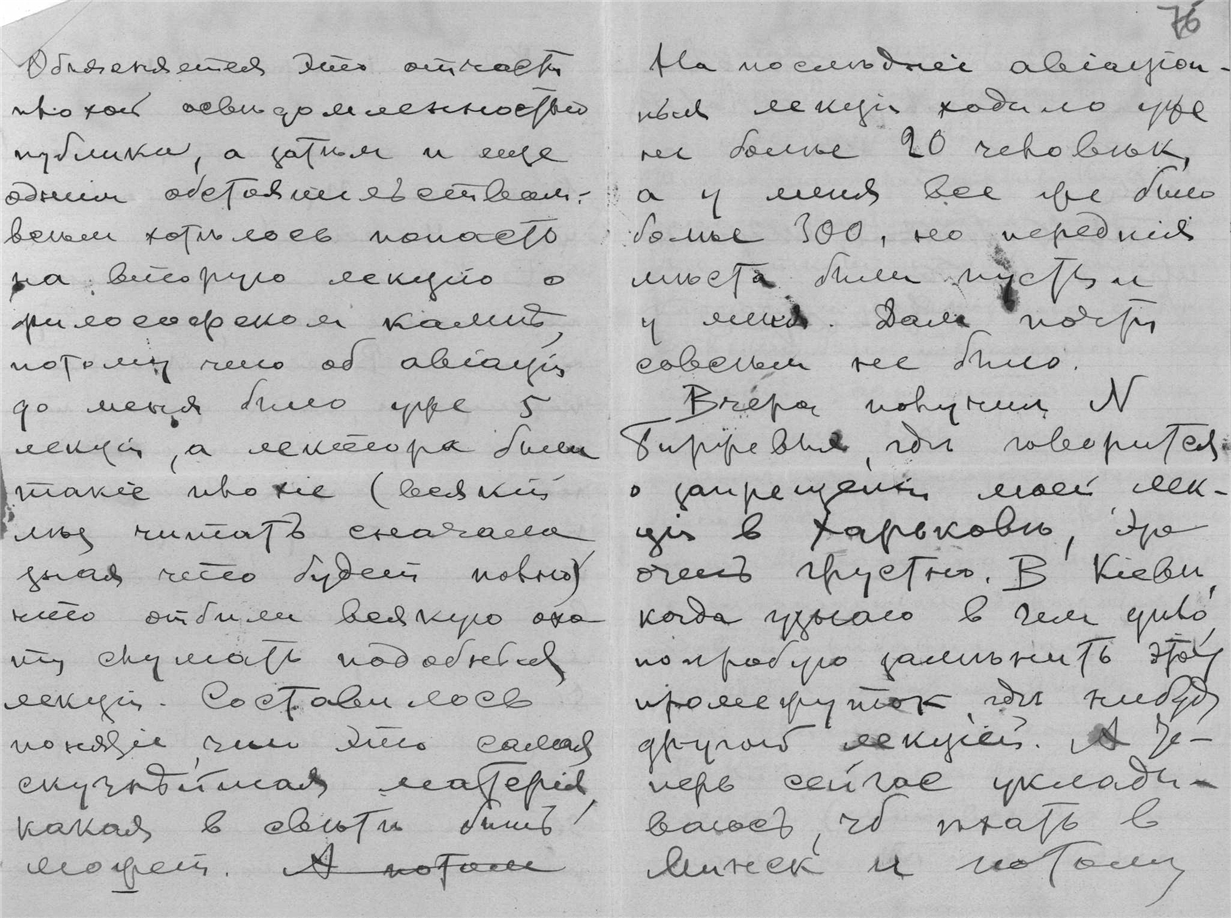 76
Объясняется это отчасти
плохой освѣдомленностью
публики, а затѣм и еще
одним обстоятельством:
всѣм хотѣлось попасть
на вторую лекцію о
философском камнѣ,
потому что об авіаціи
до меня было уже 5
лекцій, а лектора были
такіе плохіе (всякій
лѣз читать сначала
зная что будет ново)
что отбили всякую охо
ту слушать подобныя
лекціи. Составилось
понятіе, что это самая
скучнѣйшая матерія,
какая в свѣтѣ быть
может. А потом
На послѣдней авіаціон-
ныя лекціи ходило уже
не более 20 человѣк,
а у меня все же было
болѣе 300, но передніея
мѣста были пусты и
у меня. Дам почти
совсѣм не было.
Вчера получил N
Биржевыя, гдѣ говорится
о запрещеніи моей лек-
ціи в Харьковѣ, это
очень грустно. В Кіевѣ,
когда узнаю в чем дѣло,
попробую замѣнить этот
промежуток гдѣ нибудь
другой лекціей. А Те-
перь сейчас уклады-
ваюсь, чтб ѣхать в
Минск и потому